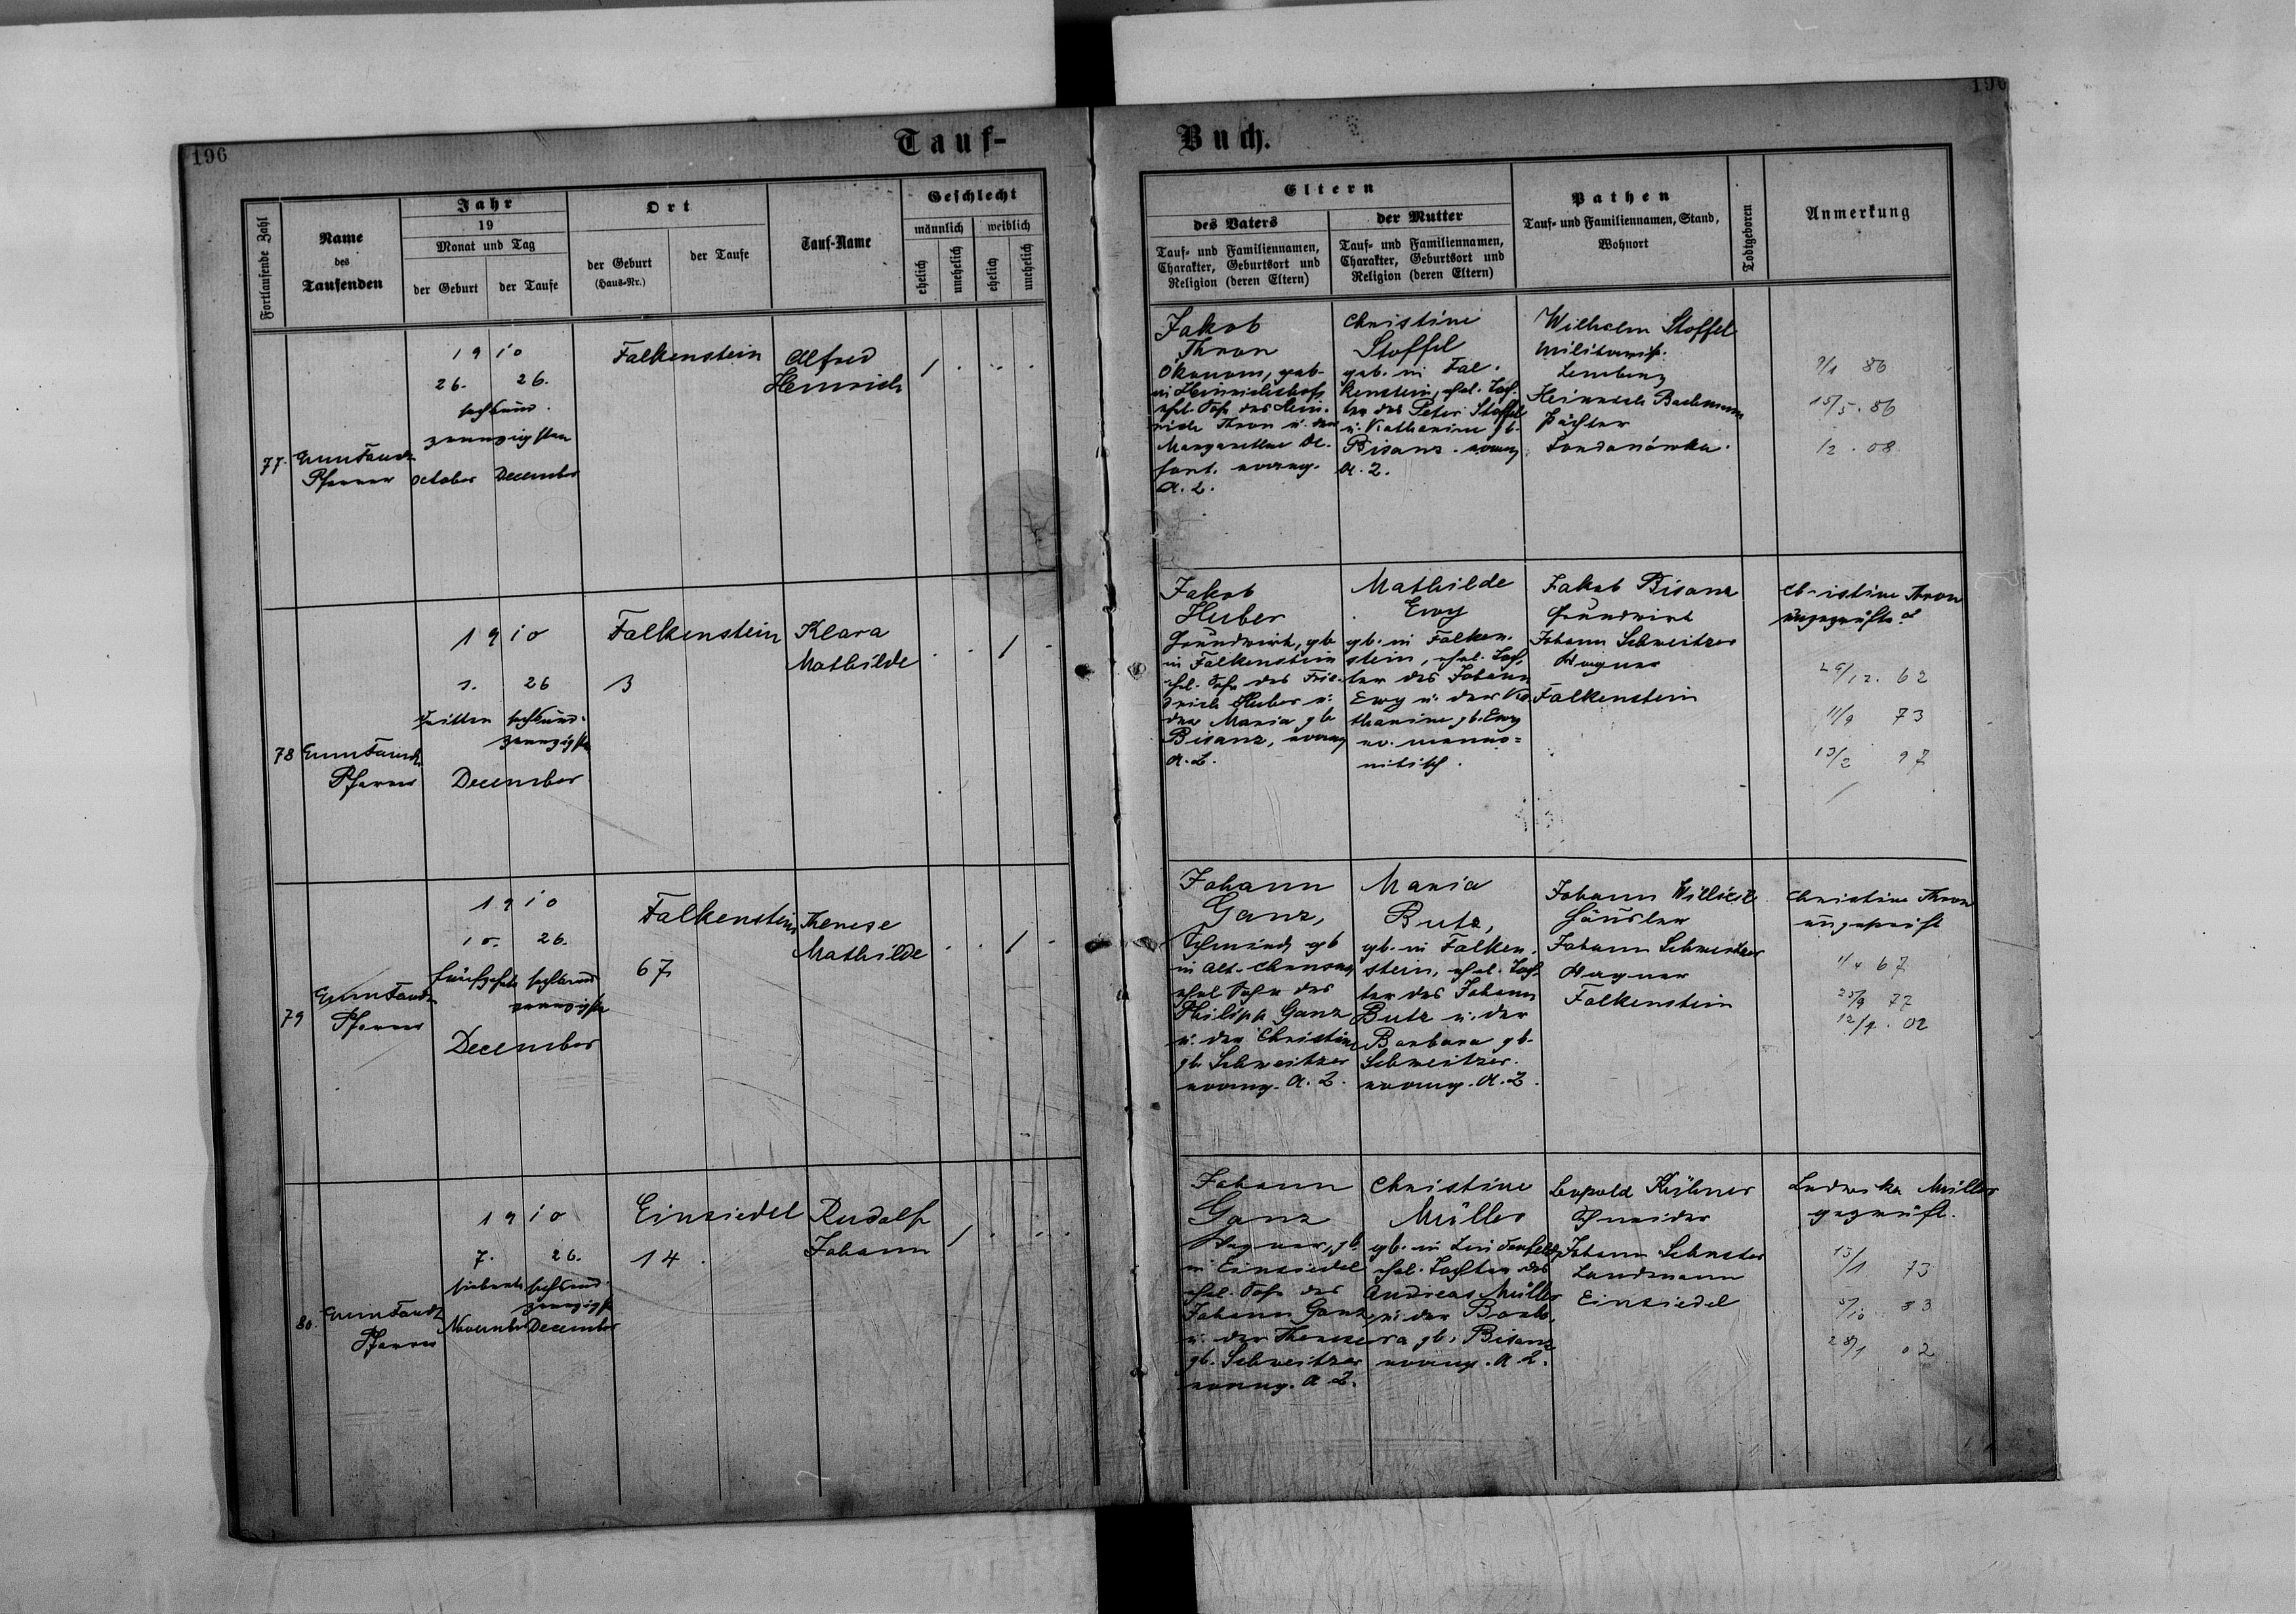 196
Tauf-
Buch.
196
Fortlaufende Zahl
Name
des
Taufenden
Jahr
19
Monat und Tag
der Geburt
der Taufe
Ort
der Geburt
(Haus-Nr.)
der Taufe
Tauf-Name
Geschlecht
männlich
weiblich
ehelich
unehelich
ehelich
unehelich
Eltern
des Vaters
Tauf- und Familiennamen,
Charakter, Geburtsort und
Religion (deren Eltern)
der Mutter
Tauf- und Familiennamen,
Charakter, Geburtsort und
Religion (deren Eltern)
Pathen
Tauf- und Familiennamen, Stand,
Wohnort
Todtgeboren
Anmerkung
77.
Pfarrer
1910
26. 26.
sechsund.
zwanzigsten
October December
Falkenstein
Alfred
Heinrich
Jakob
Thron
Ökonom, geb.
in Heinrichshof
ehel. Sohn des Hein-
rich Thron u. der
Margarethe
evang.
A. L.
Christine
Stoffel
geb. in Fal.
kenstein, ehel. Toch.
ter des Peter Stoffel
u. Katharine gb.
Bisanz. evang
A. L.
Wilhelm Stoffel
Lemberg
Heinrich Bachmann
Pächter
9/1 86
15/5. 86
1/2. 08
78
Pfarrer
1910
1. 26
sechsund-
zwanzigste
December
Falkenstein
3
Klara
Mathilde
Jakob
Huber
Grundwirt, gb
in Falkenstein
ehel. Sohn des Frie-
drich Huber u.
der Maria gb
Bisanz, evang
A. L.
Mathilde
Ewy
gb. in Falken.
stein, ehel. Toch.
ter des Johann
Ewy u. der Ka.
tharine gb. Ewy
menno=
nitisch.
Jakob Bisanz
Grundwirt
Johann Schweitzer
Wagner
Falkenstein
Christine Thron
29/12. 62
11/9 73
13/2 97
79
Pfarrer
1910
15. 26.
fünfzehnte sechsund
zwanzigste
December
Falkenstein
67
Therese
Mathilde
Johann
Ganz,
Schmied gb
in Alt-
ehel Sohn des
Philipp Ganz
u. der Christine
gb. Schweitzer
evang. A. L.
Maria
Butz,
gb. in Falken.
stein, ehel. Toch-
ter des Johann
Butz u. der
Barbara gb.
Schweitzer.
evang. A. L.
Johann
Häusler
Johann Schweitzer
Wagner
Falkenstein
Christine Thron
1/4 67
25/9 77
12/4. 02
80.
Pfarrer
1910
7. 26.
siebente sechsund.
zwanzigste
November December
Einsiedel
14.
Rudolf
Johann
Johann
Ganz
Wagner, gb.
in Einsiedel
ehel. Sohn des
Johann Ganz
u. der Therese
gb. Schweitzer
evang. A L.
Christine
Müller
gb. in Lindenfeld,
ehel. Tochter des
Andreas Müller
u. der Barba.
ra gb. Bisanz
evang. A L.
Leopold Kühner
Schneider
Johann Schuster
Landmann
Einsiedel
Ludwika Müller
geprüft.
15/1 73
5/10 83
28/1 02